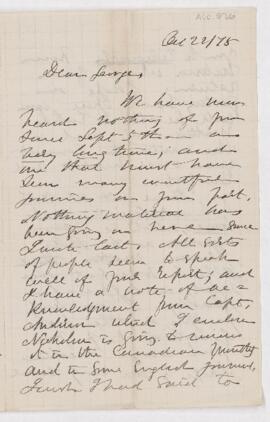 Acc. 826
Oct 22/75
Dear George,
We have now
heard nothing of you
since Sept 5th – a
very long time; and
one that must have
been many eventful
journies on your part.
Nothing material has
been going on here since
I wrote last. All sorts
of people seem to speak
well of your Report; and
I have a note of ac-
knowledgment from Capt.
Anderson which I enclose
Nicholson is going to review
it in the Canadian Monthly
and in some English journal,
I wish I had said to